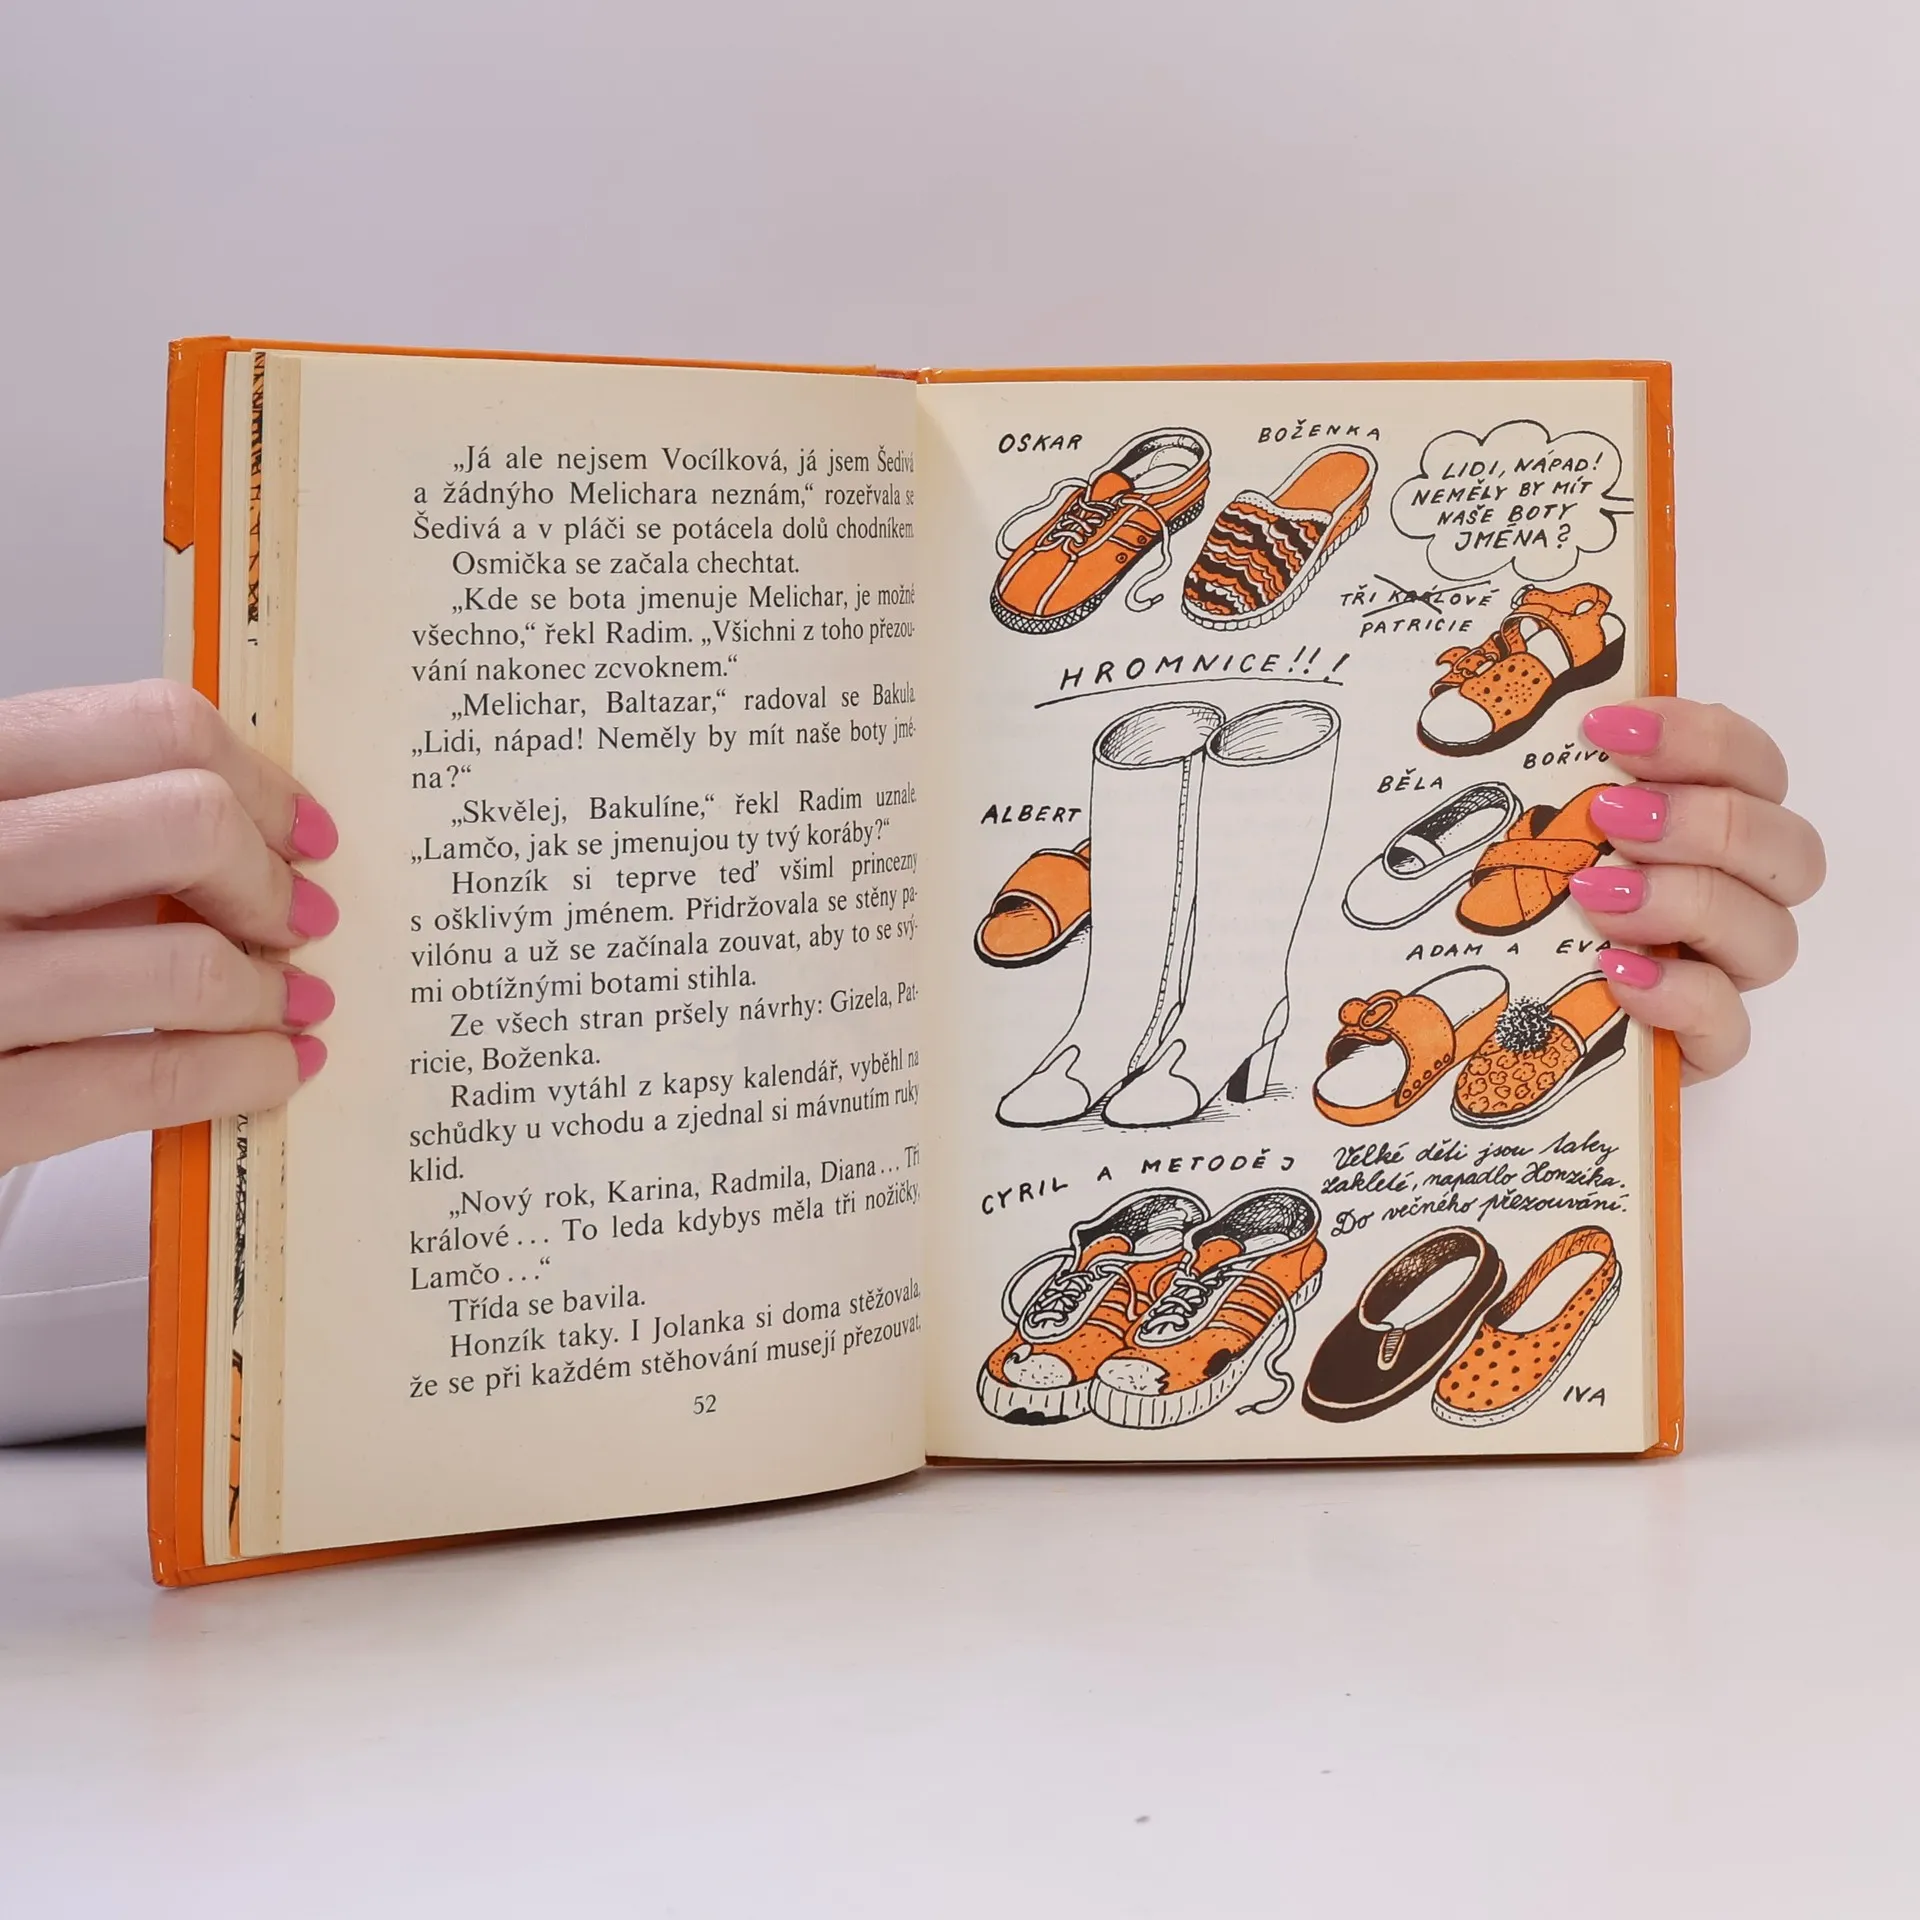 „Já ale nejsem Vocílková, já jsem Šedivá
a žádnýho Melichara neznám,“ rozeřvala se
Šedivá a v pláči se potácela dolů chodníkem
Osmička se začala chechtat.
„Kde se bota jmenuje Melichar, je možné
všechno,“ řekl Radim. „Všichni z toho přezou-
vání nakonec zcvoknem.“
„Melichar, Baltazar,“ radoval se Bakula.
„Lidi, nápad! Neměly by mít naše boty jmé-
na?“
„Skvělej, Bakulíne,“ řekl Radim uznale.
„Lamčo, jak se jmenujou ty tvý koráby?“
Honzík si teprve teď všiml princezny
s ošklivým jménem. Přidržovala se stěny pa-
vilónu a už se začínala zouvat, aby to se svý-
mi obtížnými botami stihla.
Ze všech stran pršely návrhy: Gizela, Pat-
ricie, Boženka.
Radim vytáhl z kapsy kalendář, vyběhl na
schůdky u vchodu a zjednal si mávnutím ruky
klid.
„Nový rok, Karina, Radmila, Diana... Tři
králové... To leda kdybys měla tři nožičky,
Lamčo...“
Třída se bavila.
Honzík taky. I Jolanka si doma stěžovala,
že se při každém stěhování musejí přezouvat,
52
OSKAR
BOŽENKA
LIDI, NÁPAD!
NEMĚLY BY MÍT
NAŠE BOTY
JMÉNA?
TŘI KRÁLOVÉ
PATRICIE
HROMNICE!!!
ALBERT
BĚLA
BOŘIVO
ADAM A EVA
CYRIL A METODĚJ
Velké děti jsou taky
zakleté, napadlo Honzíka.
Do věčného přezouvání.
IVA